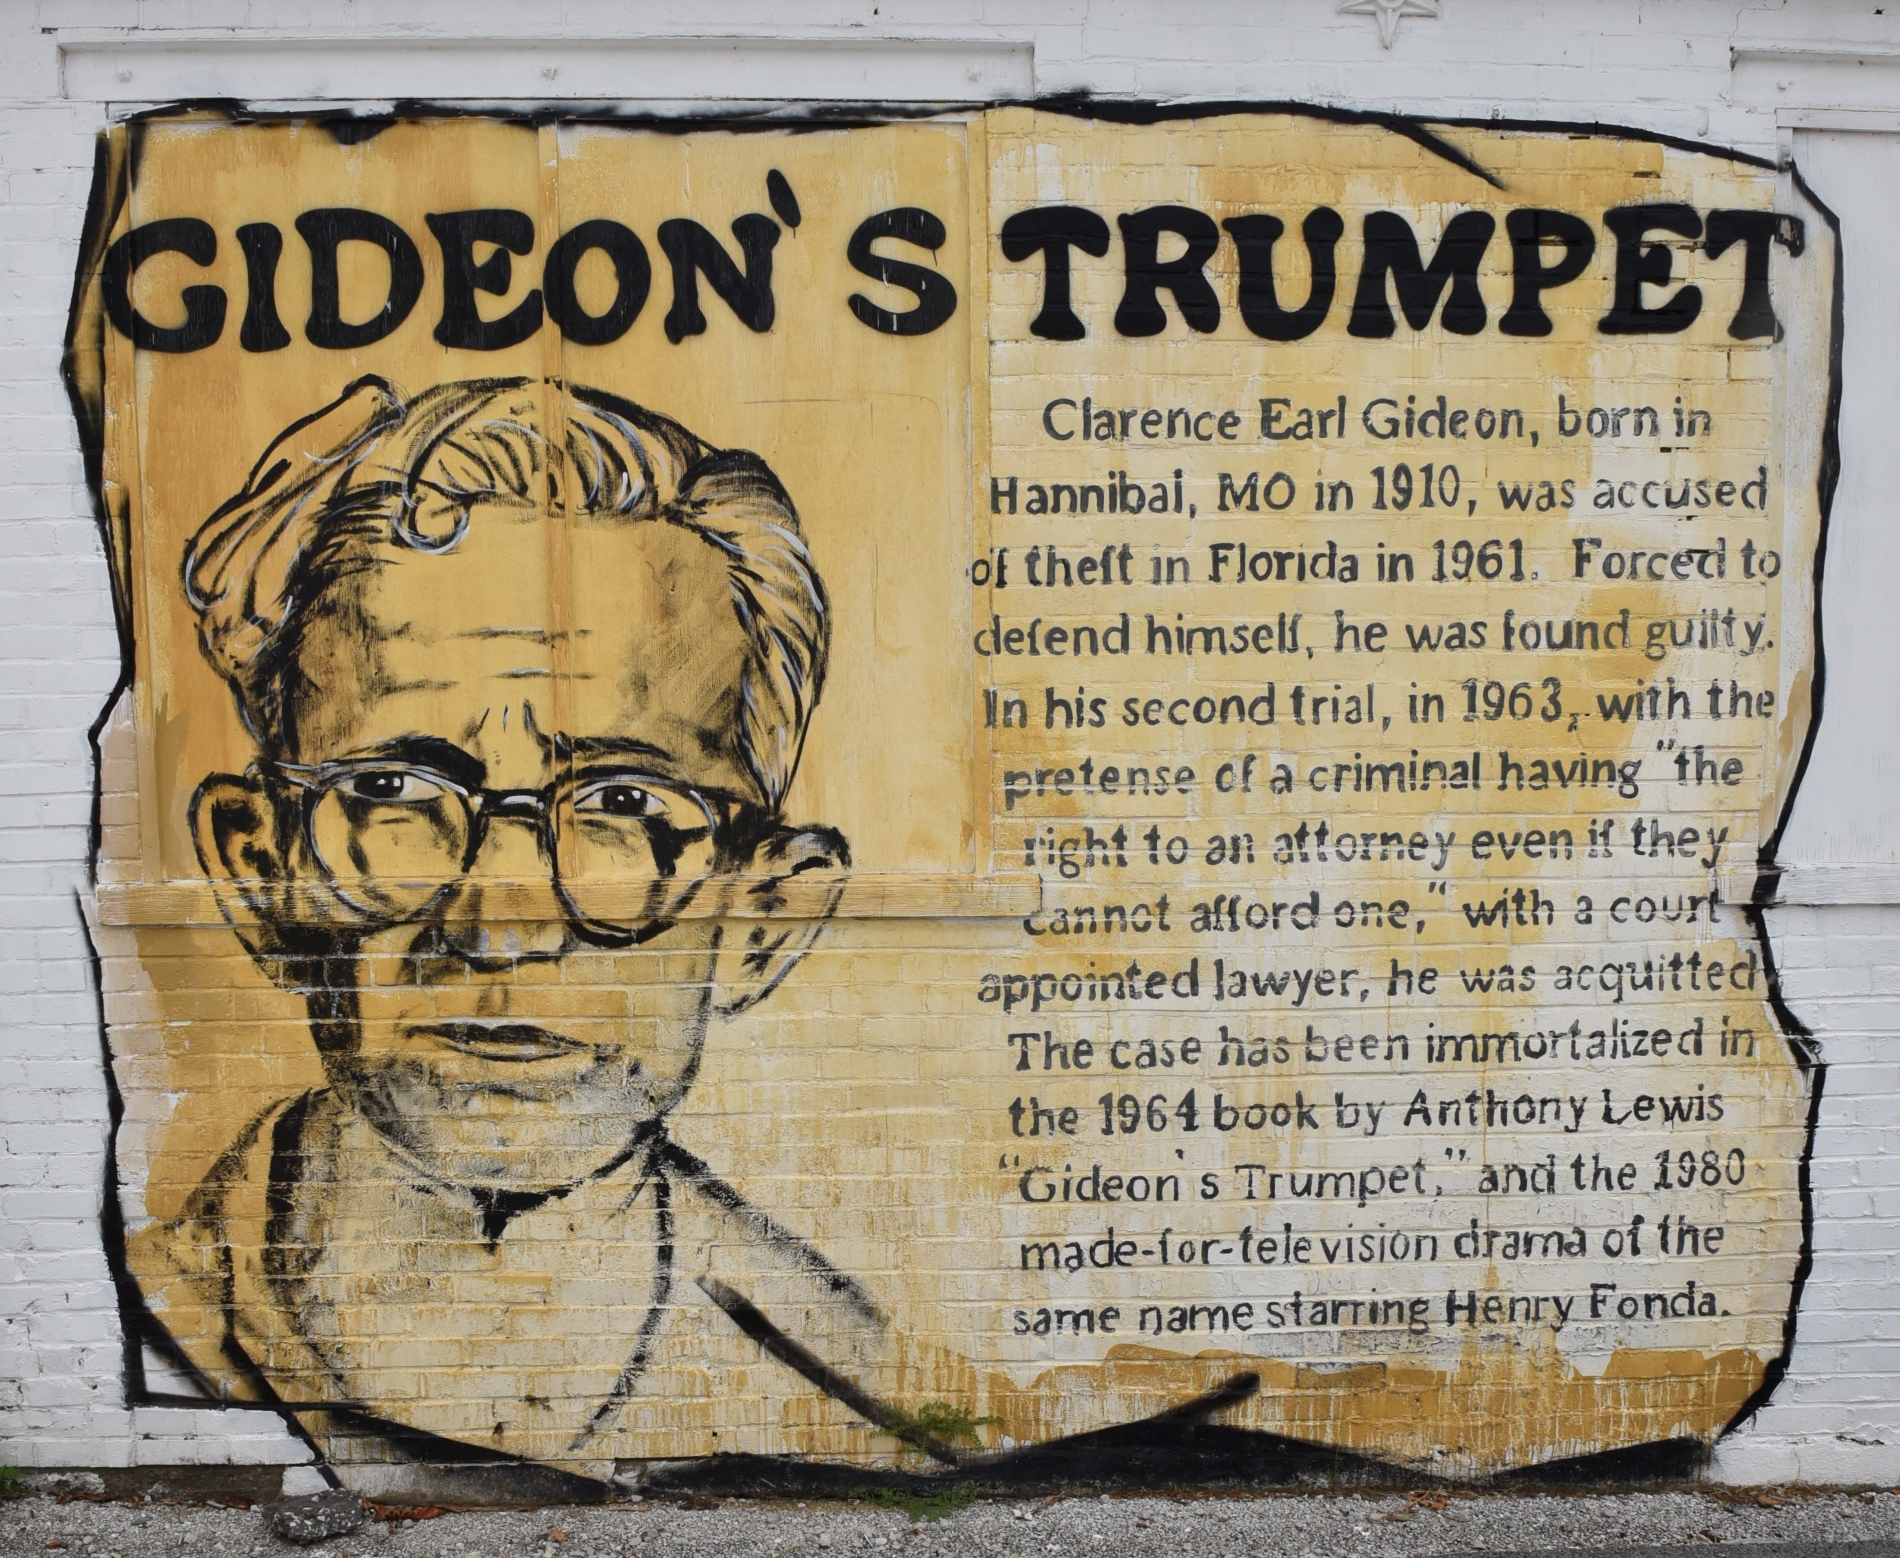 GIDEON'S TRUMPET
Clarence Earl Gideon, born in
Hannibal, MO in 1910, was accused
of theft in Florida in 1961. Forced to
defend himself, he was found guilty.
In his second trial, in 1963, with the
pretense of a criminal having "the
right to an attorney even if they
cannot afford one," with a court
appointed lawyer, he was acquitted
The case has been immortalized in
the 1964 book by Anthony Lewis
"Gideon's Trumpet," and the 1980
made-for-television drama of the
same name starring Henry Fonda.